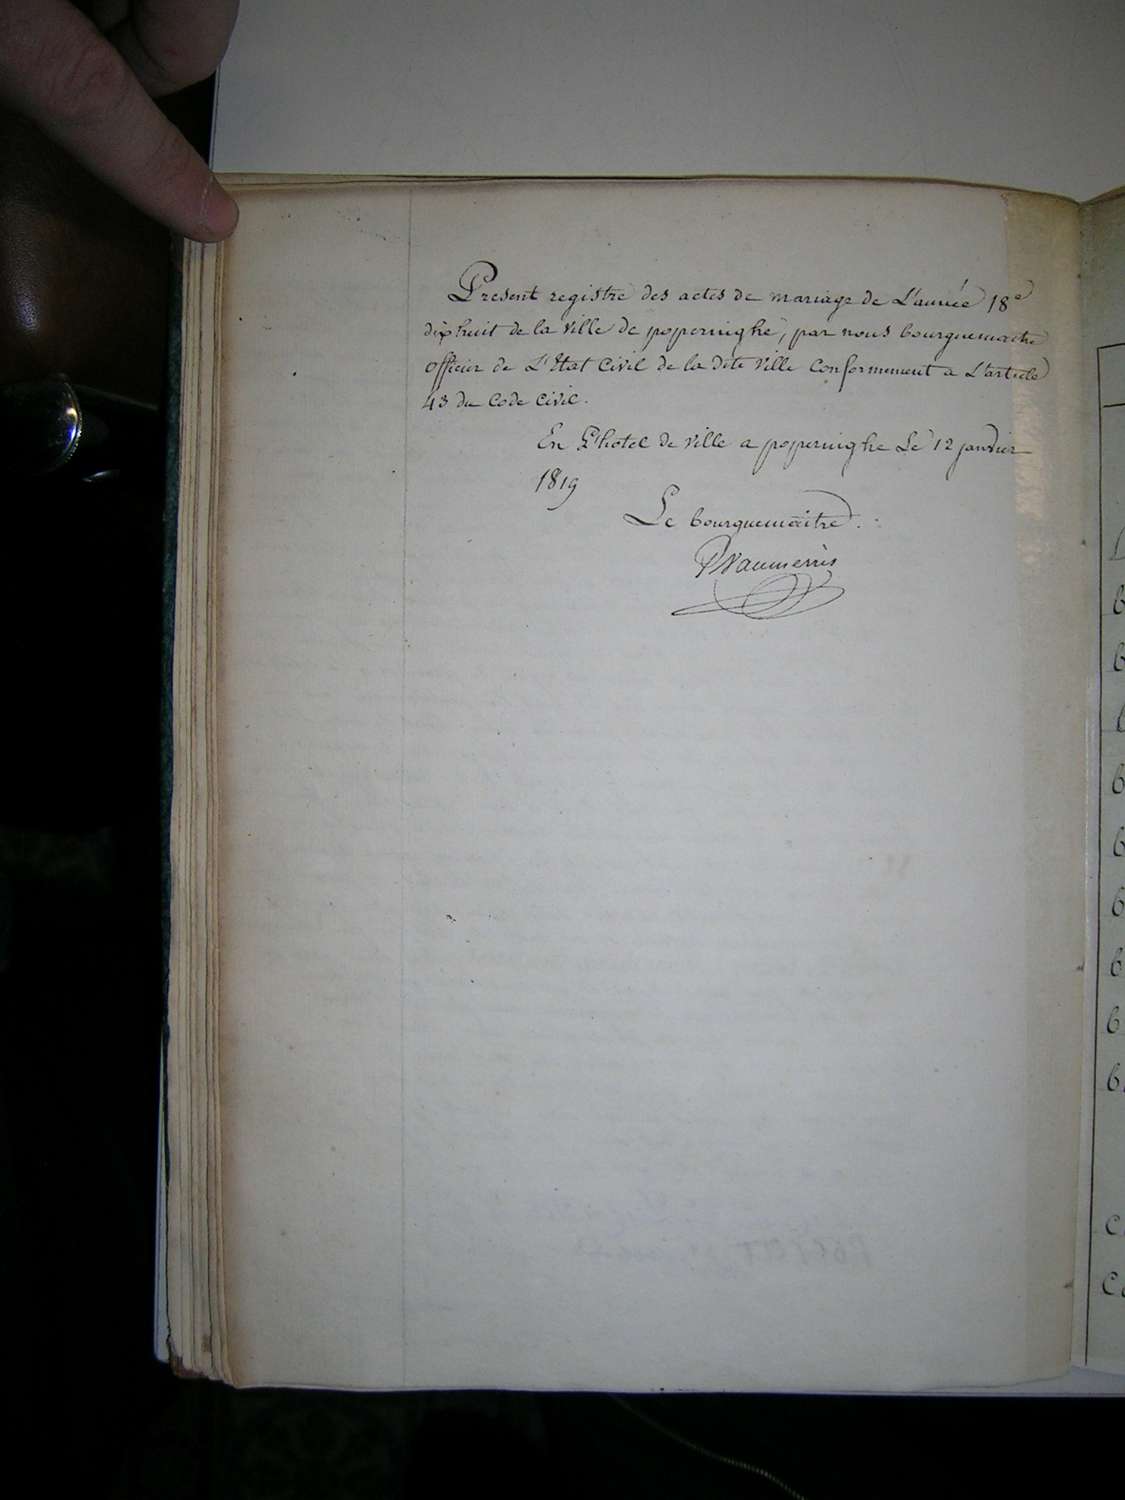 Present registre des actes de mariage de L'année 18e
dix huit de la ville de poperinghe, par nous bourguemaitre
officier de L'Etat Civil de la dite ville Conformement a L'article
43 du Code Civil.
En L'hotel de ville a poperinghe Le 12 janvier
1819
Le bourguemaitre.